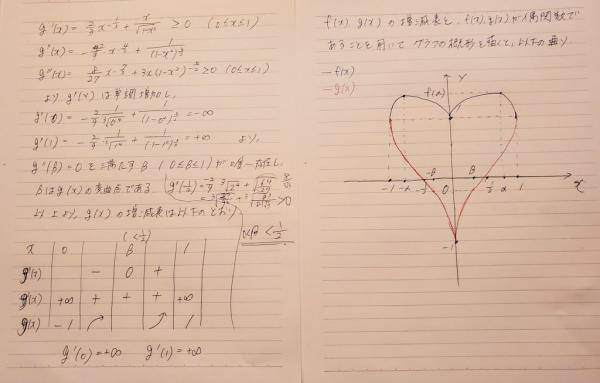 g'(x) = 2/3 x^{-1/3} + x/√(1-x²) ≥ 0 (0≤x≤1)
g''(x) = -2/9 x^{-4/3} + 1/(1-x²)^{3/2}
g'''(x) = 8/27 x^{-7/3} + 3x(1-x²)^{-5/2} ≥ 0 (0≤x≤1)
より g''(x) は単調増加し、
g''(0) = -2/9 1/∛0⁴ + 1/(1-0²)^{3/2} = -∞
g''(1) = -2/9 1/∛1⁴ + 1/(1-1²)^{3/2} = +∞ より、
g''(β)=0 を満たす β (0≤β≤1) が唯一存在し、
βは g(x) の変曲点である
g''(1/2) = -2/9 ∛2⁴ + √(64/27)
>0
以上より、g(x) の増減表は以下のとおり
0<β<1/2
(<1/2)
x 0 β 1
g''(x) - 0 +
g'(x) +∞ + + + +∞
g(x) -1 1
g'(0)=+∞ g'(1)=+∞
f(x), g(x) の増減表と、f(x), g(x) が偶関数で
あることを用いて グラフの概形を描くと、以下の通り
-f(x)
-g(x)
y
f(α)
-1 -α -1/2 -β 0 β 1/2 α 1 x
-1